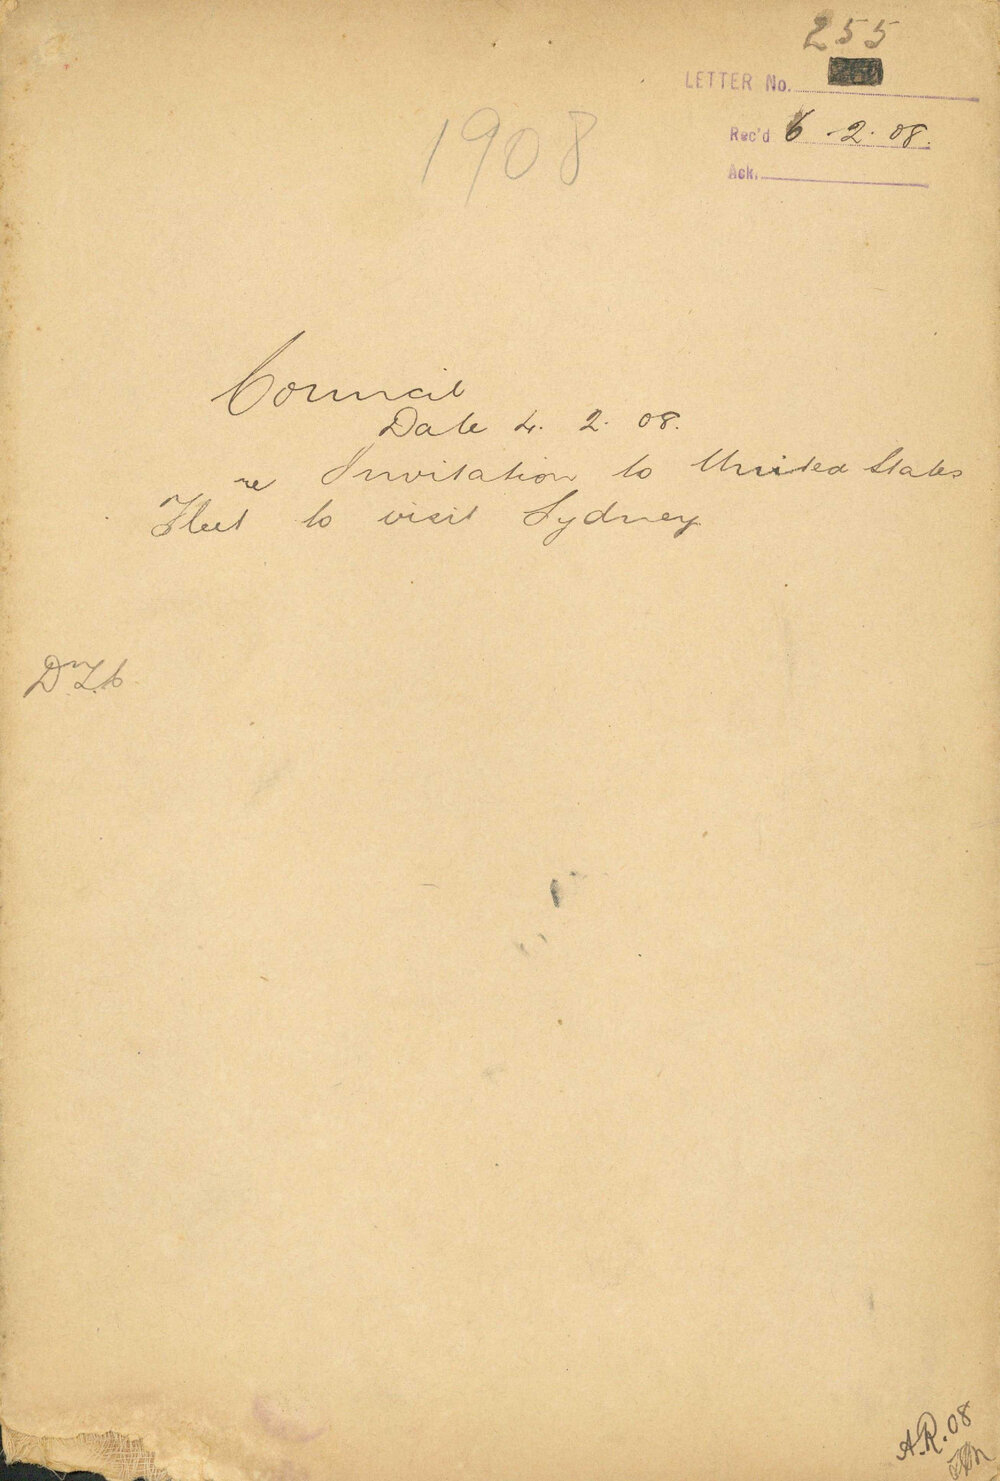 255
LETTER No.
1908
Rec'd 6-2.08.
Ack.
Council
Date 4. 2. 08.
re Invitation to United States
Fleet to visit Sydney
A.R.08